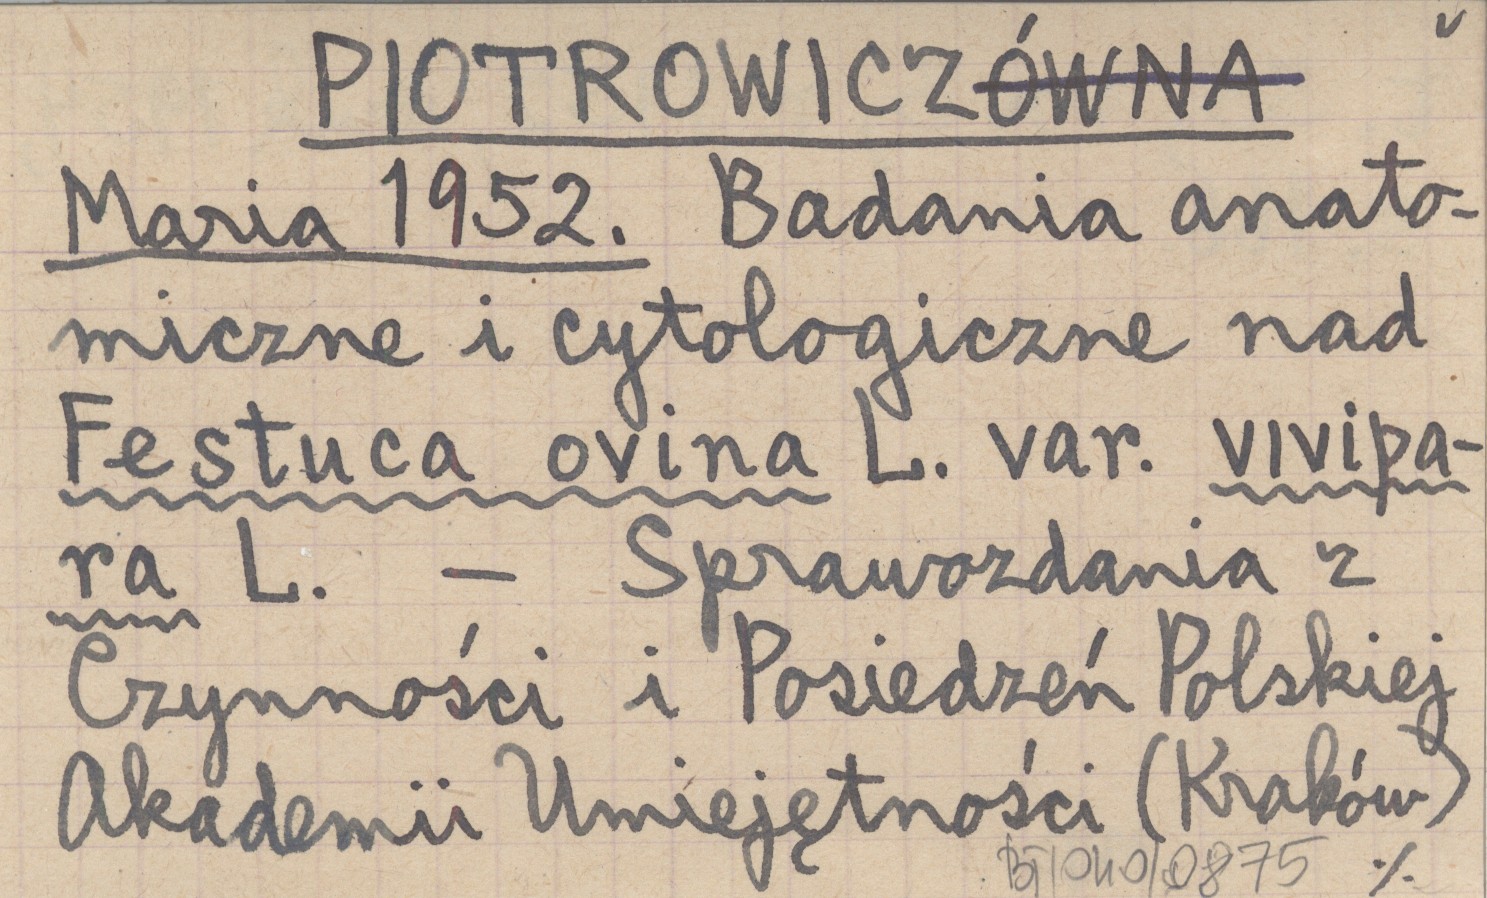 PIOTROWICZÓWNA
Maria 1952. Badania anato-
miczne i cytologiczne nad
Festuca ovina L. var. vivipa-
ra L. — Sprawozdania z
Czynności i Posiedzeń Polskiej
Akademii Umiejętności (Kraków)
BJ/040/0875 ·/.